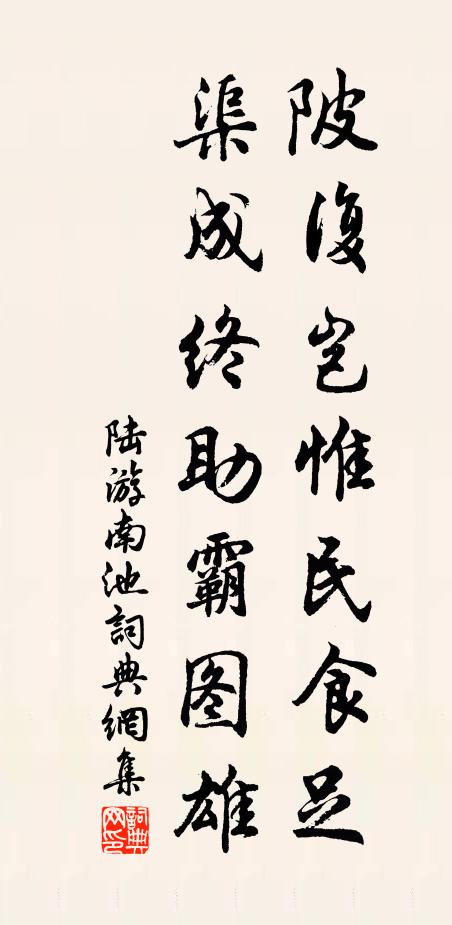 陂復岂惟民食足
渠成终助霸图雄
陆游南池詞典網集
詞典
网印